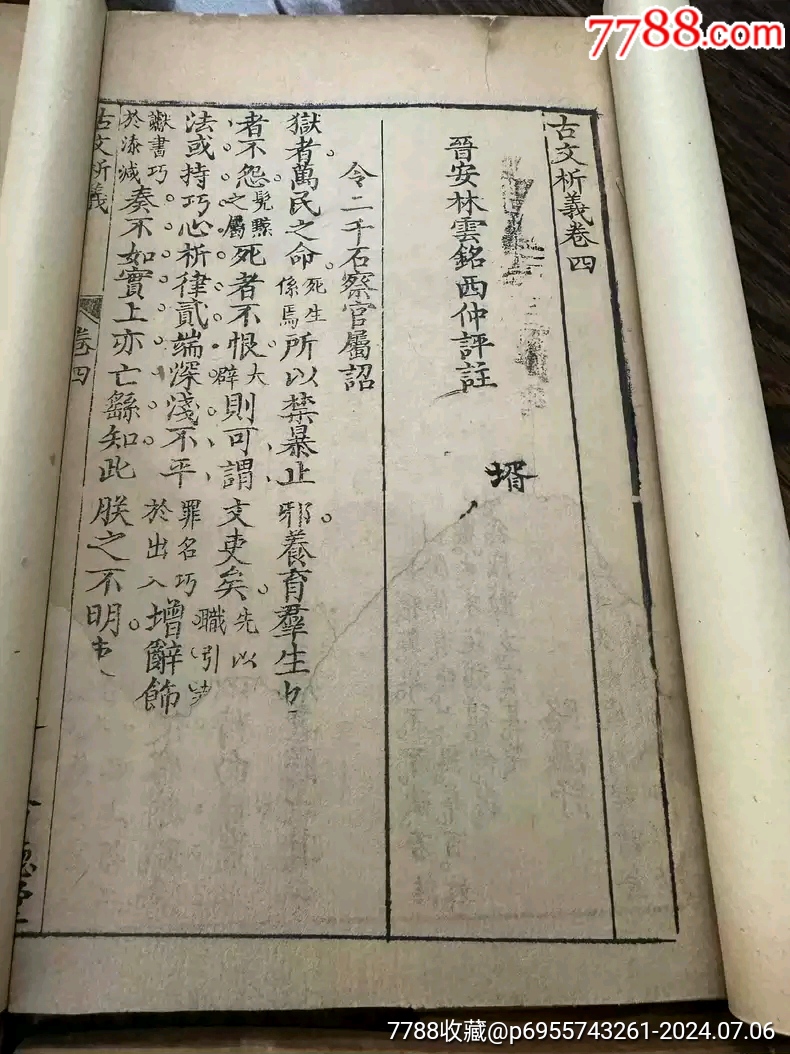 7788.com
古文析義卷四
晉安林雲銘西仲評註
壻
令二千石察官屬詔
獄者萬民之命。死生係焉所以禁暴止邪。養育羣生
者不怨髡黥之屬死者不恨大辟則可謂文吏矣。先以職引
法或持巧心析律貳端深淺不平罪名巧於出入增辭飾
讞書巧於添減奏不如實上亦亡繇知此朕之不明。
古文析義
卷四
7788收藏@p6955743261-2024.07.06